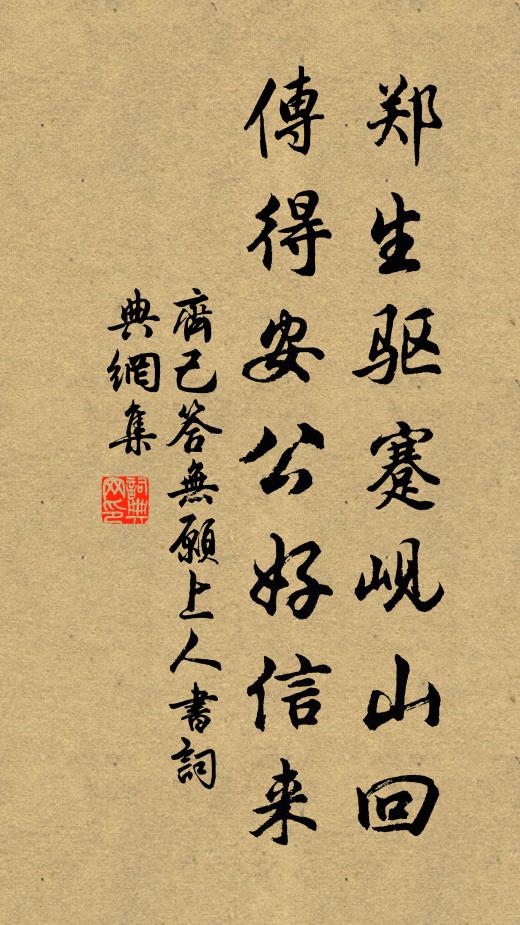 郑生驱蹇岘山回
傳得安公好信来
齊己答無願上人書詞
典網集
詞典网印